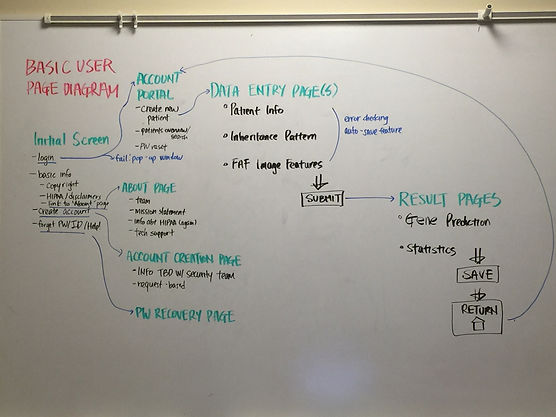 BASIC USER
PAGE DIAGRAM
Initial Screen
- login
- basic info
- Copyright
- HIPAA/disclaimers
- link to 'About' page
- create account
- forgot PW/ID/Help!
ACCOUNT
PORTAL
- Create new
patient
- patients overview/
search
- PW reset
→ fail: pop-up window
ABOUT PAGE
- team
- mission statement
- info abt HIPAA (again)
- tech support
ACCOUNT CREATION PAGE
- INFO TBD W/ security team
- request-based
PW RECOVERY PAGE
DATA ENTRY PAGE(S)
• Patient Info
• Inheritance Pattern
• FAF Image Features
error checking
auto-save feature
SUBMIT
RESULT PAGES
• Gene Prediction
• Statistics
SAVE
RETURN